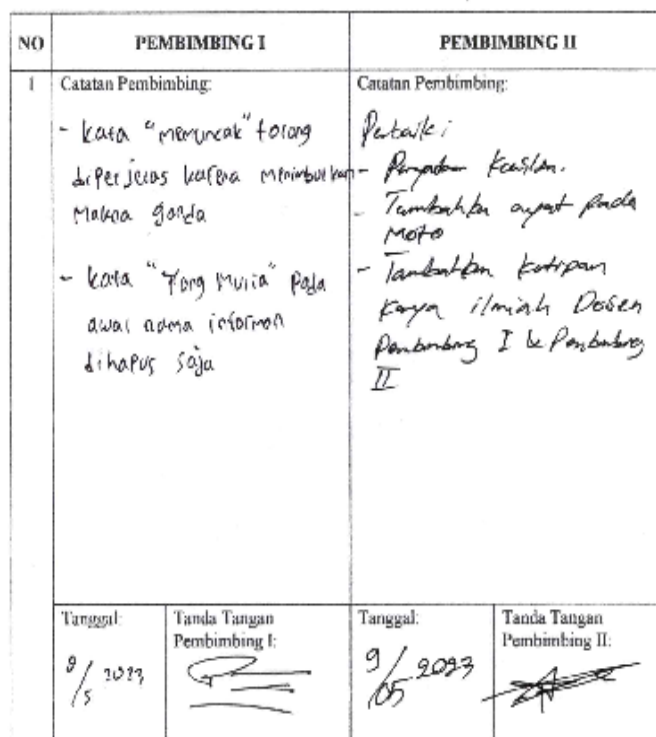 NO
PEMBIMBING I
PEMBIMBING II
1
Catatan Pembimbing:
- kata "memuncak" tolong
diperjelas karena menimbulkan
makna ganda
- kata "Yang Mulia" pada
awal nama informan
dihapus saja
Catatan Pembimbing:
Perbaiki :
-
- Tambahkan ayat pada
Moto
- Tambahkan kutipan
karya ilmiah Dosen
Pembimbing I & Pembimbing
II
Tanggal:
9/5 2023
Tanda Tangan
Pembimbing I:
Tanggal:
9/05 2023
Tanda Tangan
Pembimbing II: